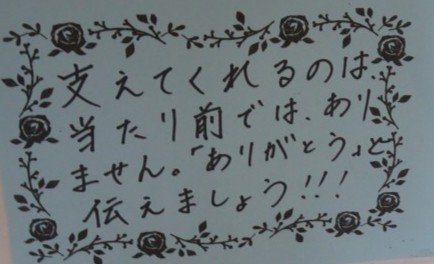 支えてくれるのは、
当たり前では、あり
ません。「ありがとう」と
伝えましょう!!!